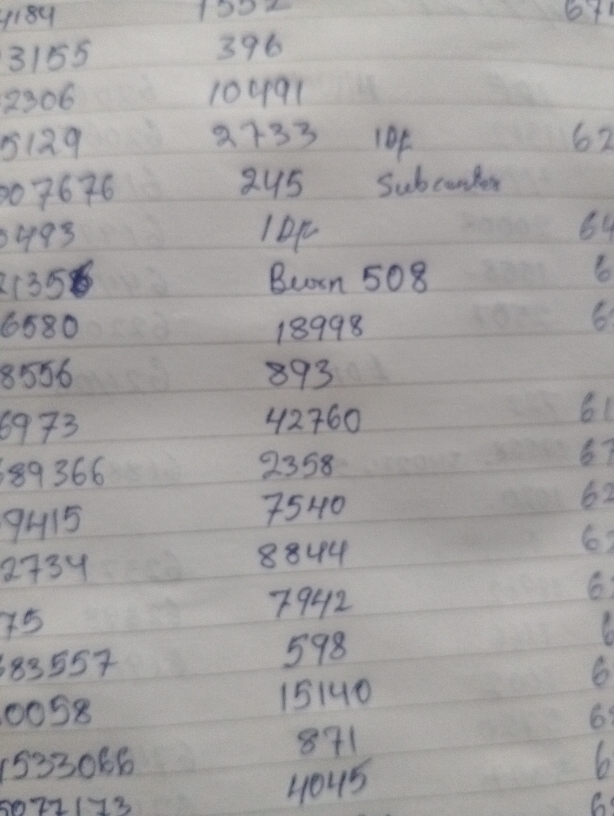 4184 1552 671
3155 396
2306 10491
5129 2733 IDf 62
007676 245 Subcenter
0493 IDf 64
21356 Bworn 508 6
6580 18998 6
8556 893
6973 42760 61
689366 2358 67
9415 7540 62
2734 8844 62
75 7942 62
683557 598 6
0058 15140 6
1533066 871 69
5077173 4045 6